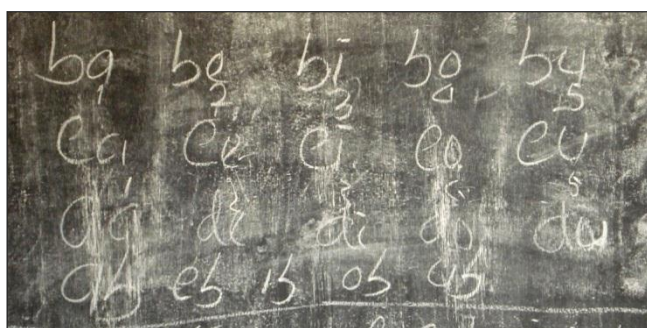 ba be bi bo bu
1 2 3 4 5
ca ce ci co cu
1 2 3 5
da de di do du
ab eb ib ob ub